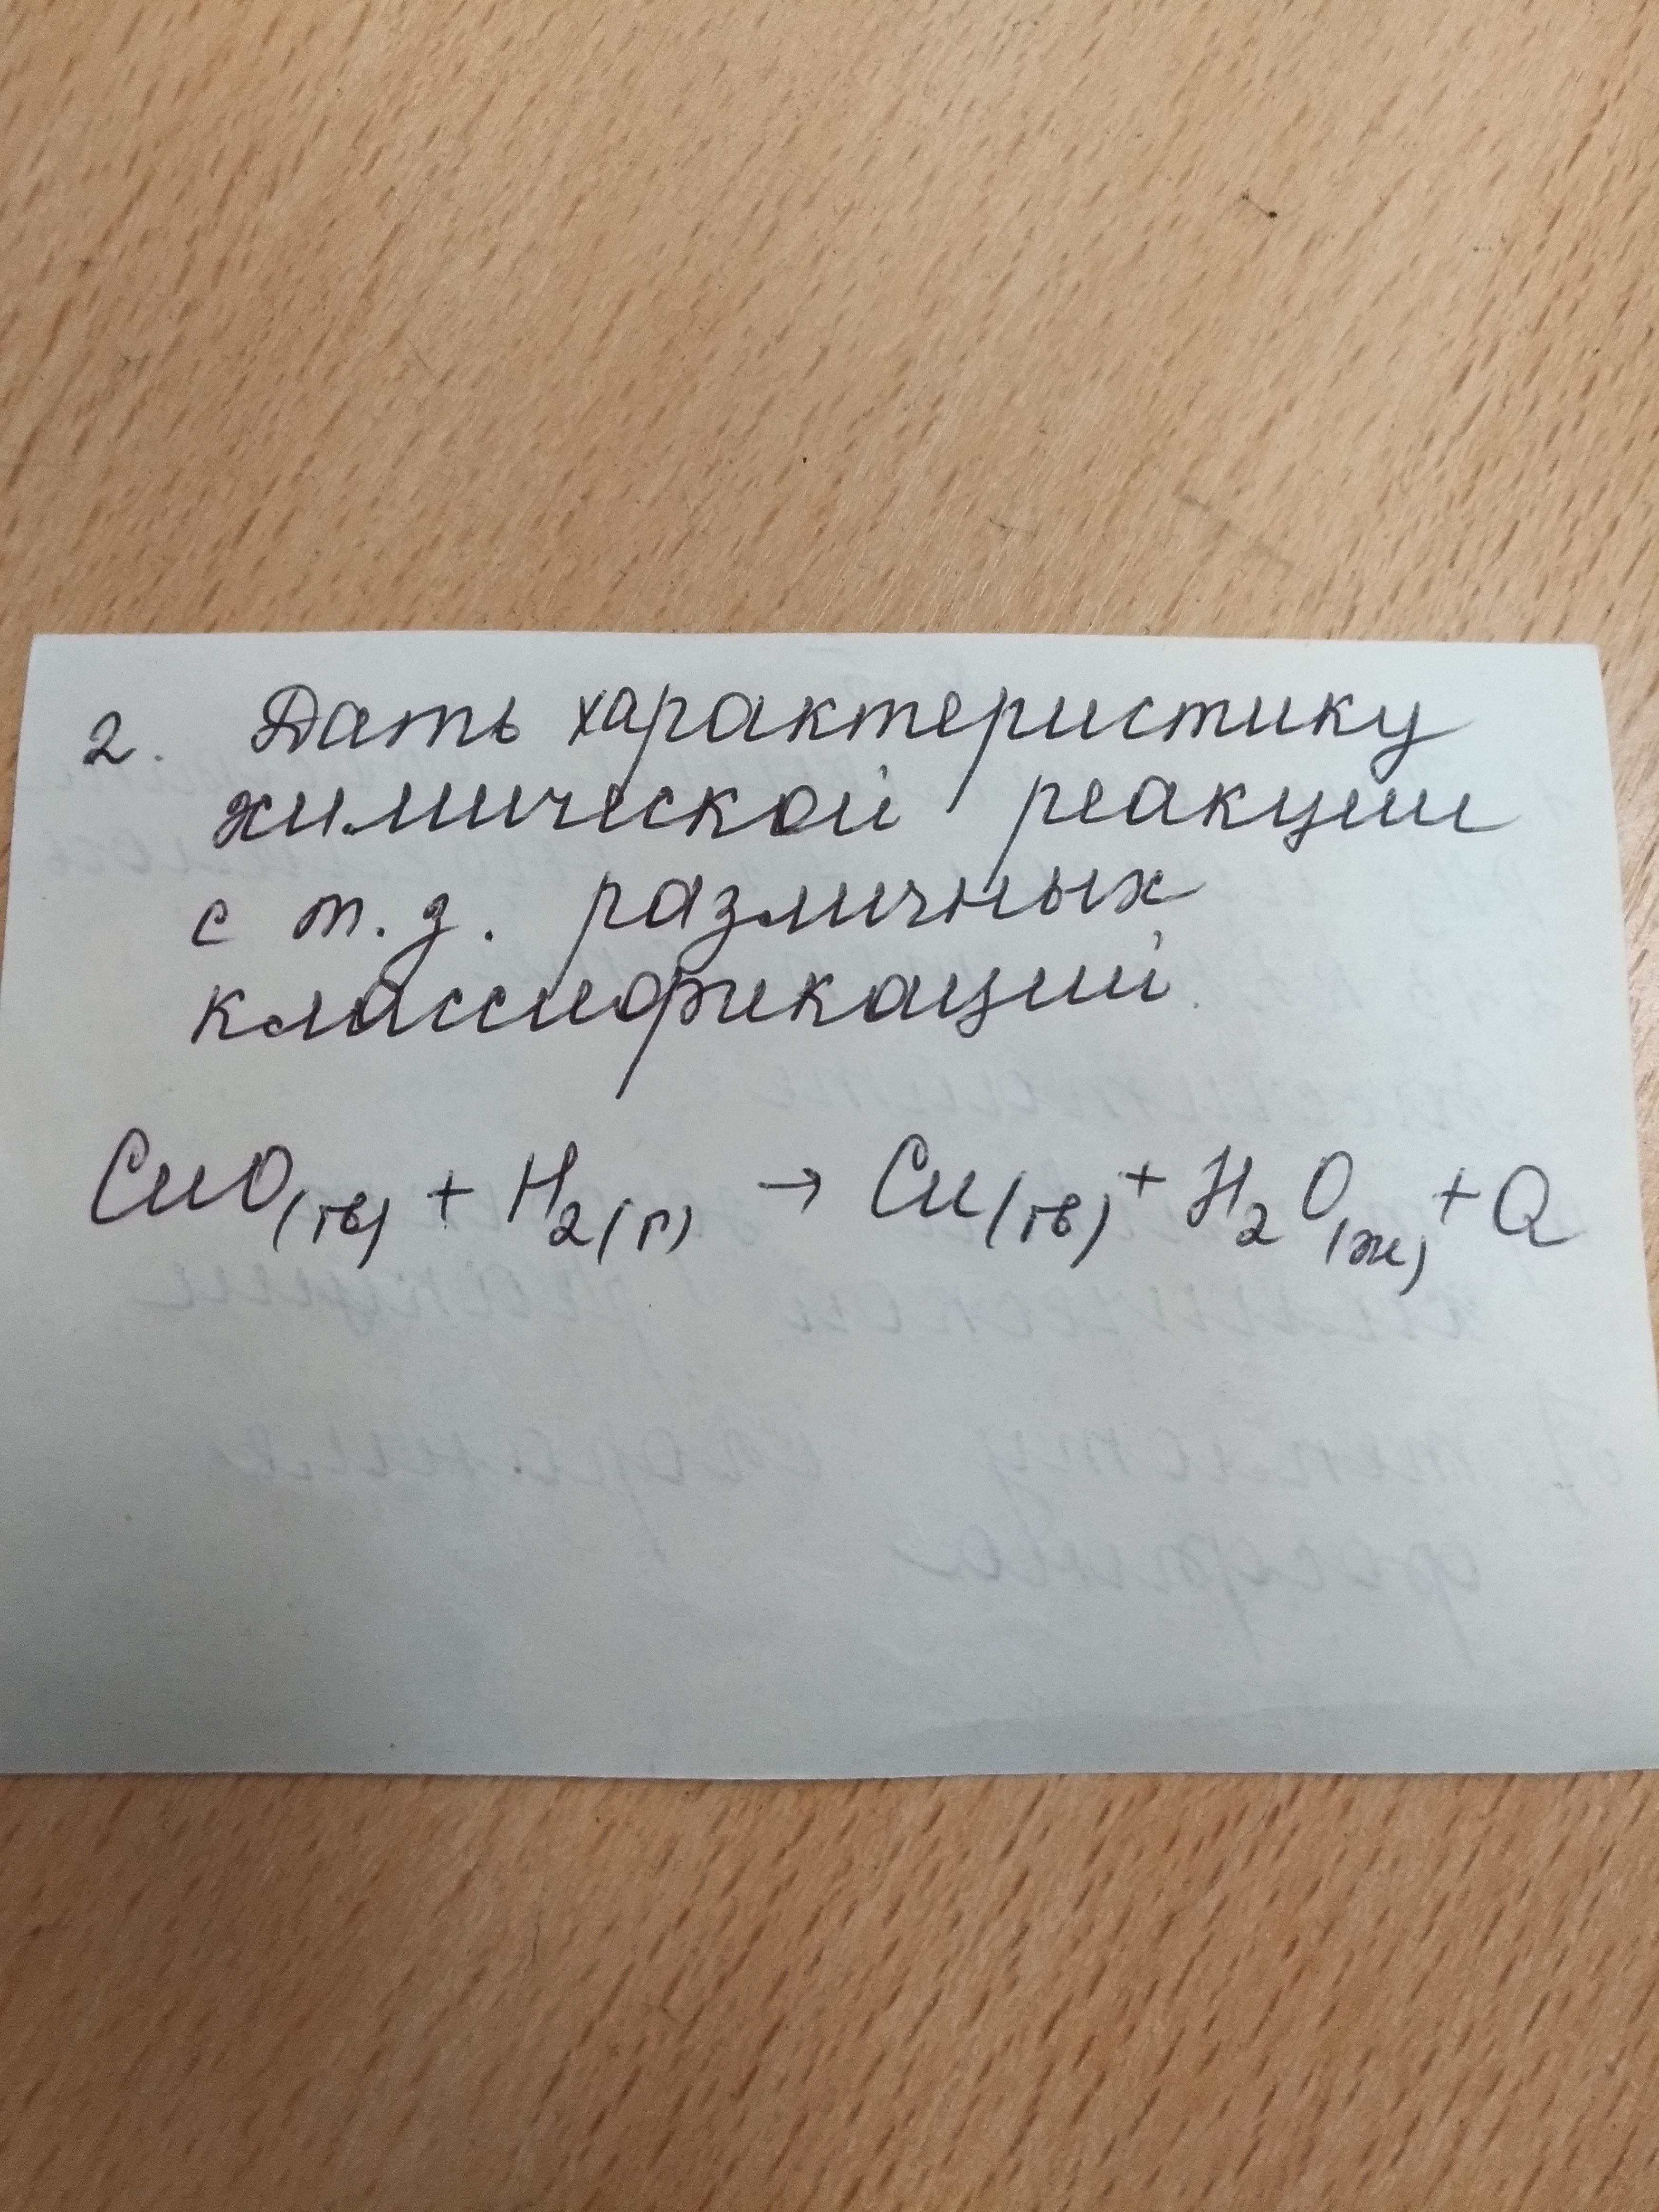 2. Дать характеристику
химической реакции
с т.з. различных
классификаций.
CuO(тв) + H2(г) → Cu(тв) + H2O(ж) + Q